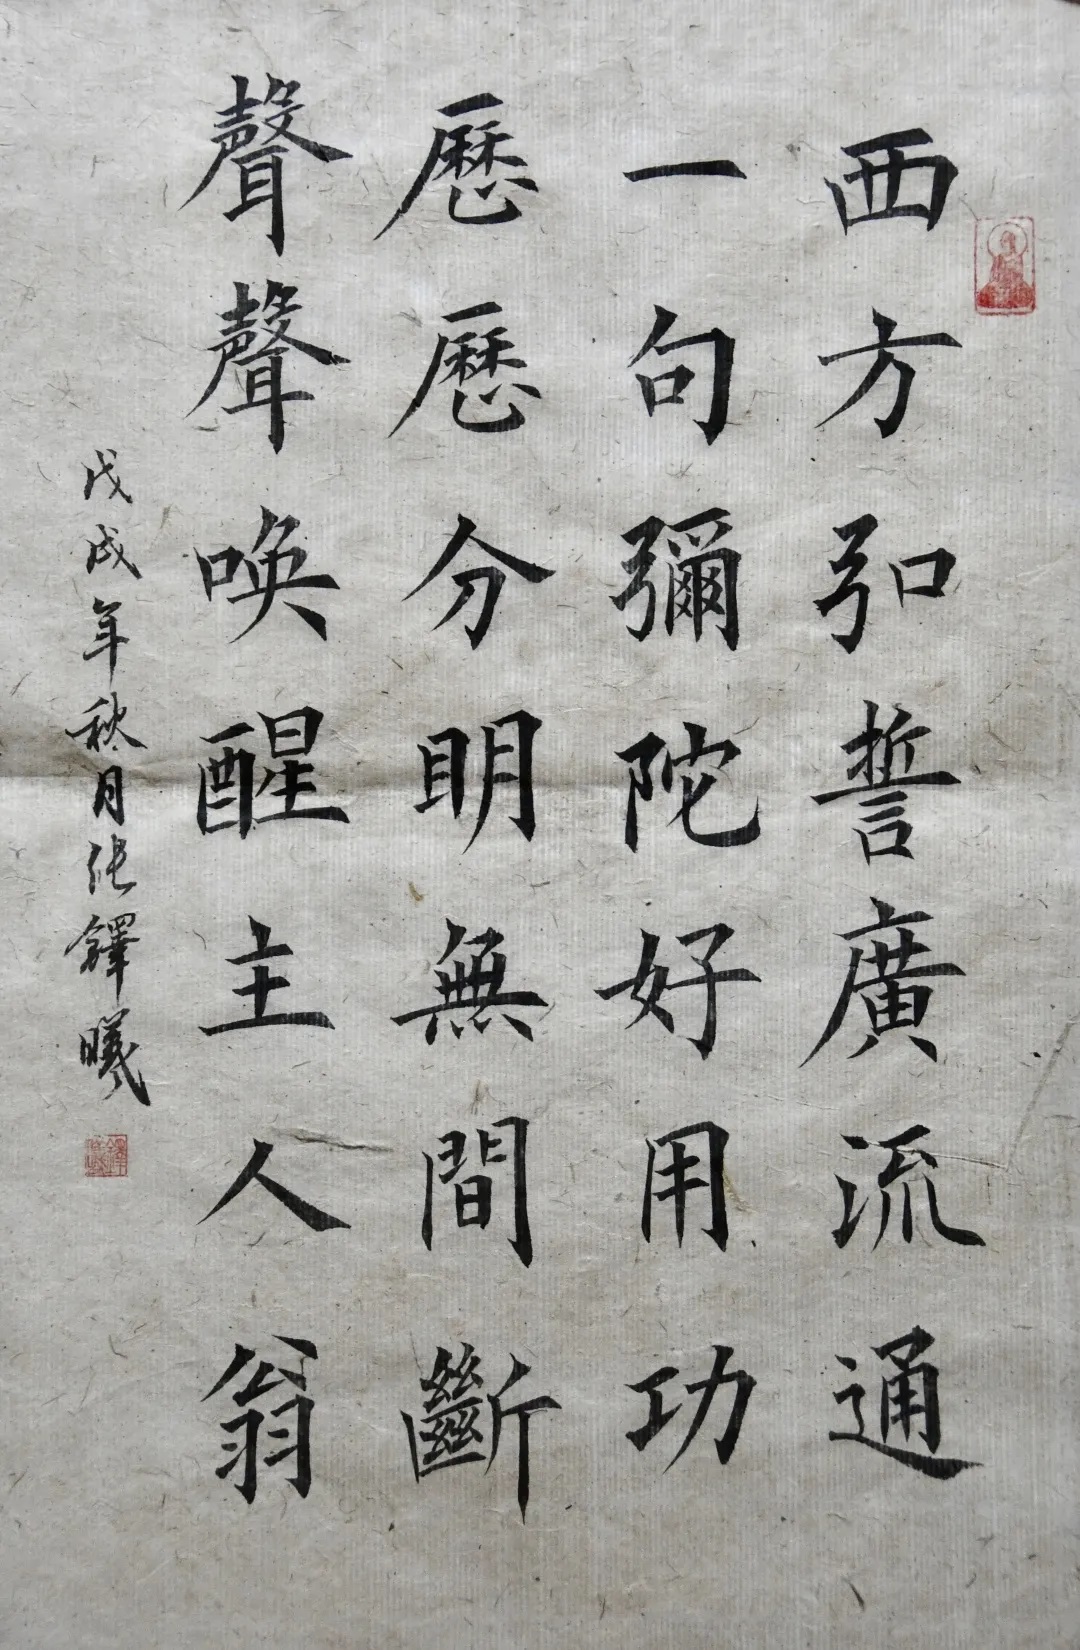 西方弘誓廣流通
一句彌陀好用功
歷歷分明無間斷
聲聲喚醒主人翁
戊戌年秋月張鐸曦